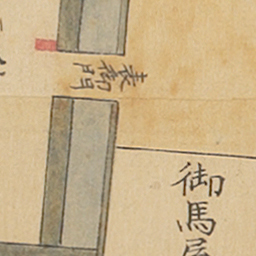 表御門
御馬屋